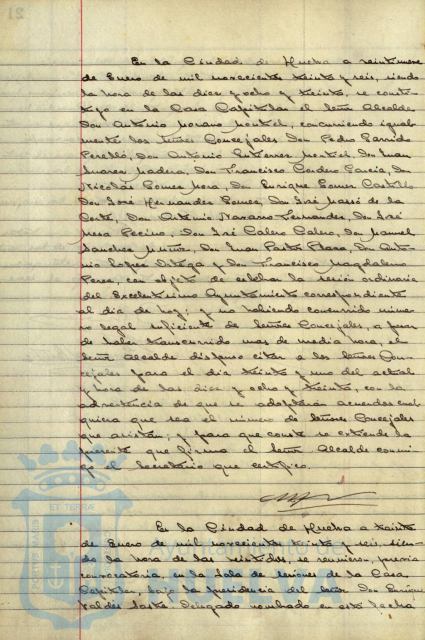 En la Ciudad de Huelva a veintinueve
de Enero de mil novecientos treinta y seis, siendo
la hora de las diez y ocho y treinta, se consti-
tuyó en la Casa Capitular el Señor Alcalde
Don Antonio Moreno Montiel, concurriendo igual-
mente los Señores Concejales Don Pedro Garrido
Perelló, Don Antonio Gutierrez Montiel, Don Juan
Suarez Madera, Don Francisco Cordero Garcia, Don
Nicolás Gomez Mora, Don Enrique Gomez Castillo
Don José Hernandez Gomez, Don José Massé de la
Corte, Don Antonio Navarro Fernandez, Don José
Mesa Pecino, Don José Calero Calero, Don Manuel
Sanchez Muñiz, Don Juan Pastor Plaza, Don Anto-
nio Lopez Ortega y Don Francisco Magdaleno
Perea, con objeto de celebrar la sesión ordinaria
del Excelentisimo Ayuntamiento correspondiente
al dia de hoy; y no habiendo concurrido núme-
ro legal suficiente de Señores Concejales, a pesar
de haber transcurrido mas de media hora, el
Señor Alcalde dispuso citar a los Señores Con-
cejales para el dia treinta y uno del actual
y hora de las diez y ocho y treinta, con la
advertencia de que se adoptarán acuerdos cual-
quiera que sea el número de Señores Concejales
que asistan; y para que conste se extiende la
presente que firma el Señor Alcalde conmi-
go el Secretario que certifico.
En la Ciudad de Huelva a treinta
de Enero de mil novecientos treinta y seis, sien-
do la hora de las veintidos, se reunieron, previa
convocatoria, en la Sala de sesiones de la Casa
Capitular, bajo la presidencia del Señor Don Enrique
Valdes Delegado nombrado en esta fecha
ET TERRAE
PORTUS MARIS
Ayuntamiento de